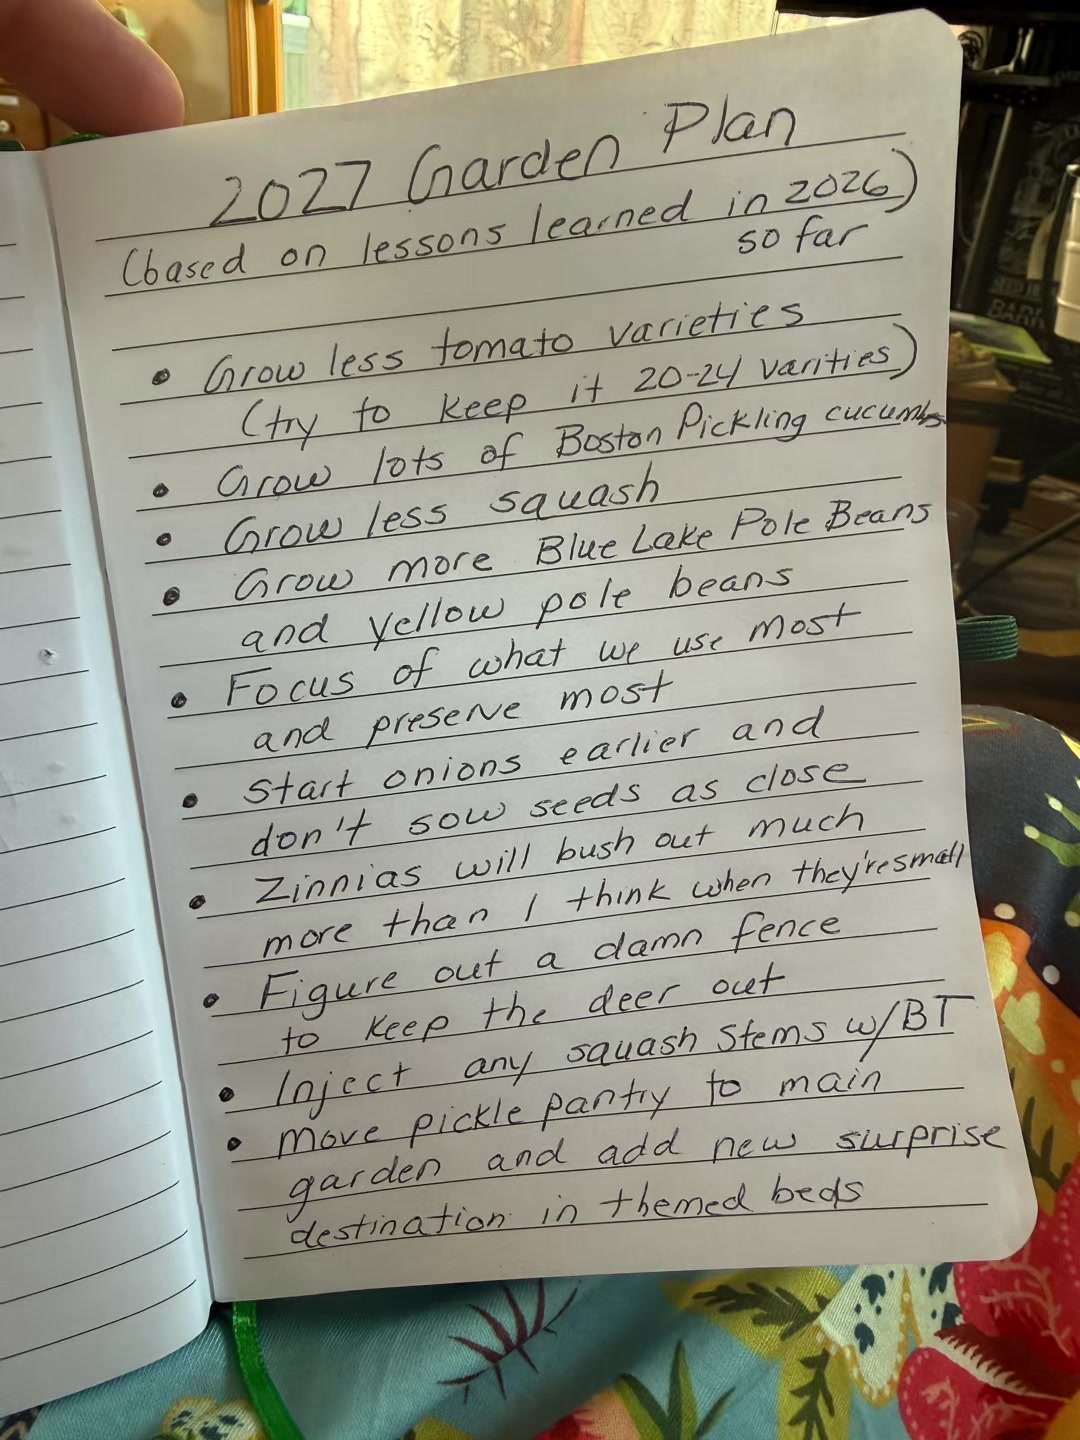 2027 Garden Plan
(based on lessons learned in 2026)
so far
• Grow less tomato varieties
(try to keep it 20-24 varities)
• Grow lots of Boston Pickling cucumbs
• Grow less squash
• Grow more Blue Lake Pole Beans
and yellow pole beans
• Focus of what we use most
and preserve most
• start onions earlier and
don't sow seeds as close
• Zinnias will bush out much
more than I think when they're small
• Figure out a damn fence
to keep the deer out
• Inject any squash stems w/BT
• move pickle pantry to main
garden and add new surprise
destination in themed beds